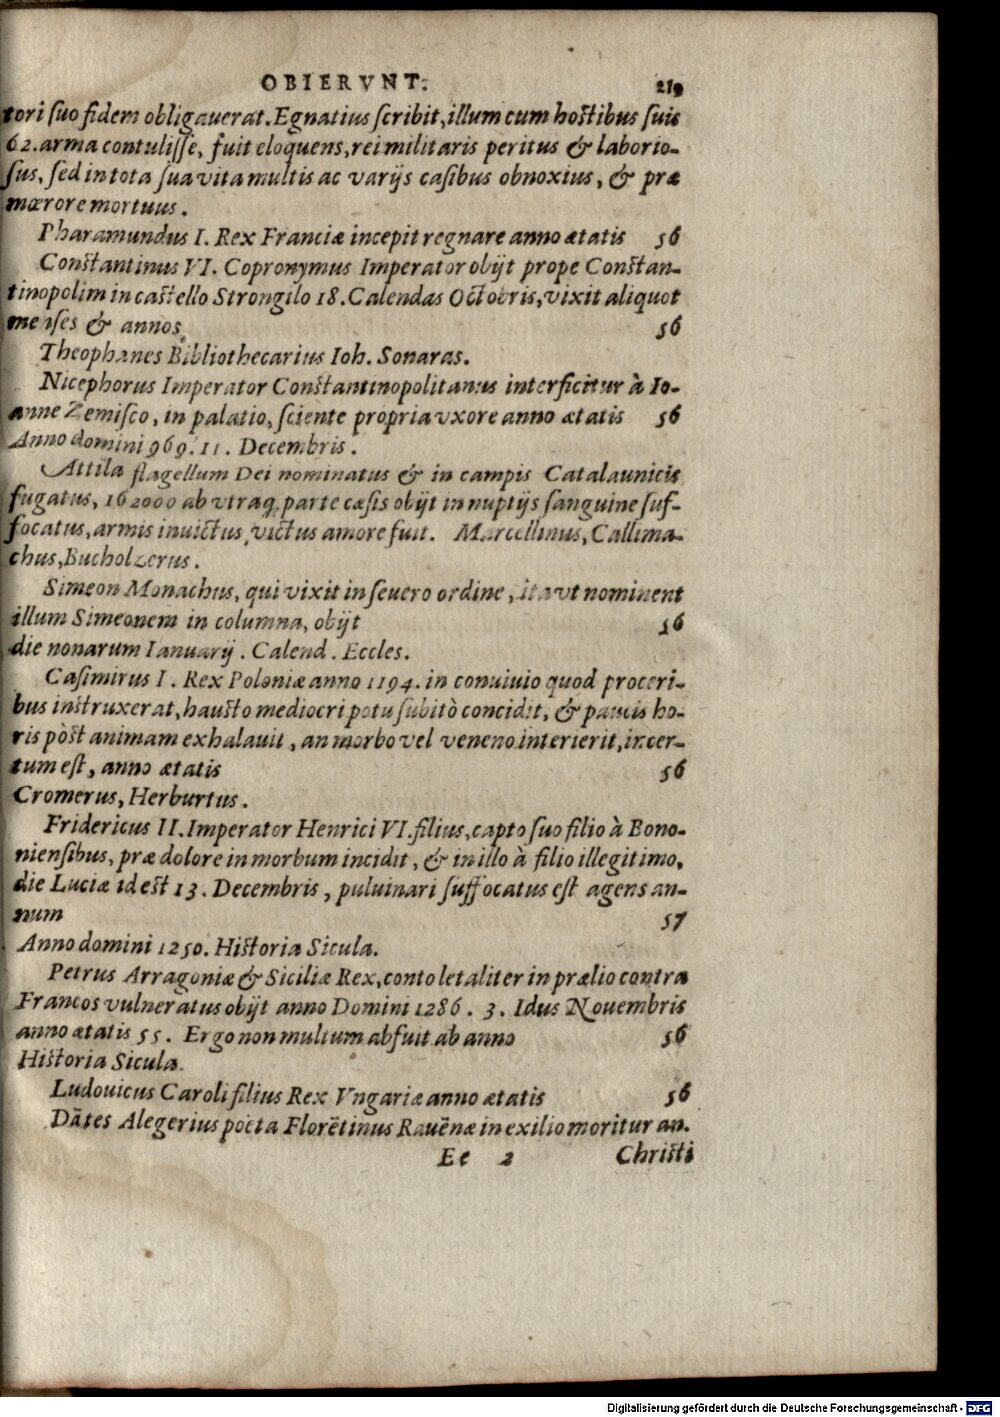 OBIERVNT. 219
tori ſuo fidem obligauerat. Egnatius ſcribit, illum cum hoſtibus ſuis
62. arma contuliſſe, fuit eloquens, rei militaris peritus & laborio-
ſus, ſed in tota ſua vita multis ac varijs caſibus obnoxius, & præ
mœrore mortuus.
Pharamundus I. Rex Franciæ incepit regnare anno ætatis 56
Conſtantinus VI. Copronymus Imperator obijt prope Conſtan-
tinopolim in caſtello Strongilo 18. Calendas Octobris, vixit aliquot
menſes & annos 56
Theophanes Bibliothecarius Ioh. Sonaras.
Nicephorus Imperator Conſtantinopolitanus interficitur à Io-
anne Zemiſco, in palatio, ſciente propria vxore anno ætatis 56
Anno domini 969. 11. Decembris.
Attila flagellum Dei nominatus & in campis Catalaunicis
fugatus, 162000 ab vtraq; parte cæſis obijt in nuptijs ſanguine ſuf-
focatus, armis inuictus, victus amore fuit. Marcellinus, Callima-
chus, Bucholzerus.
Simeon Monachus, qui vixit in ſeuero ordine, ita vt nominent
illum Simeonem in columna, obijt 56
die nonarum Ianuarij. Calend. Eccles.
Caſimirus I. Rex Poloniæ anno 1194. in conuiuio quod proceri-
bus inſtruxerat, hauſto mediocri potu ſubitò concidit, & paucis ho-
ris pòſt animam exhalauit, an morbo vel veneno interierit, incer-
tum eſt, anno ætatis 56
Cromerus, Herburtus.
Fridericus II. Imperator Henrici VI. filius, capto ſuo filio à Bono-
nienſibus, præ dolore in morbum incidit, & in illo à filio illegitimo,
die Luciæ id eſt 13. Decembris, puluinari ſuffocatus eſt agens an-
num 57
Anno domini 1250. Hiſtoria Sicula.
Petrus Arragoniæ & Siciliæ Rex, conto letaliter in prælio contra
Francos vulneratus obijt anno Domini 1286. 3. Idus Nouembris
anno ætatis 55. Ergo non multum abfuit ab anno 56
Hiſtoria Sicula.
Ludouicus Caroli filius Rex Vngariæ anno ætatis 56
Dātes Alegerius poeta Florētinus Rauēnæ in exilio moritur an.
Ee 2 Chriſti
Digitalisierung gefördert durch die Deutsche Forschungsgemeinschaft - DFG